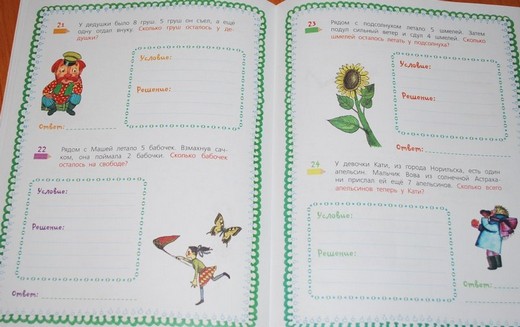 21
У дедушки было 8 груш. 5 груш он съел, а ещё
одну отдал внуку. Сколько груш осталось у де-
душки?
Условие:
Решение:
Ответ:
22
Рядом с Машей летало 5 бабочек. Взмахнув сач-
ком, она поймала 2 бабочки. Сколько бабочек
осталось на свободе?
Условие:
Решение:
Ответ:
23
Рядом с подсолнухом летало 5 шмелей. Затем
подул сильный ветер и сдул 4 шмелей. Сколько
шмелей осталось летать у подсолнуха?
Условие:
Решение:
Ответ:
24
У девочки Кати, из города Норильска, есть один
апельсин. Мальчик Вова из солнечной Астраха-
ни прислал ей ещё 7 апельсинов. Сколько всего
апельсинов теперь у Кати?
Условие:
Решение:
Ответ: